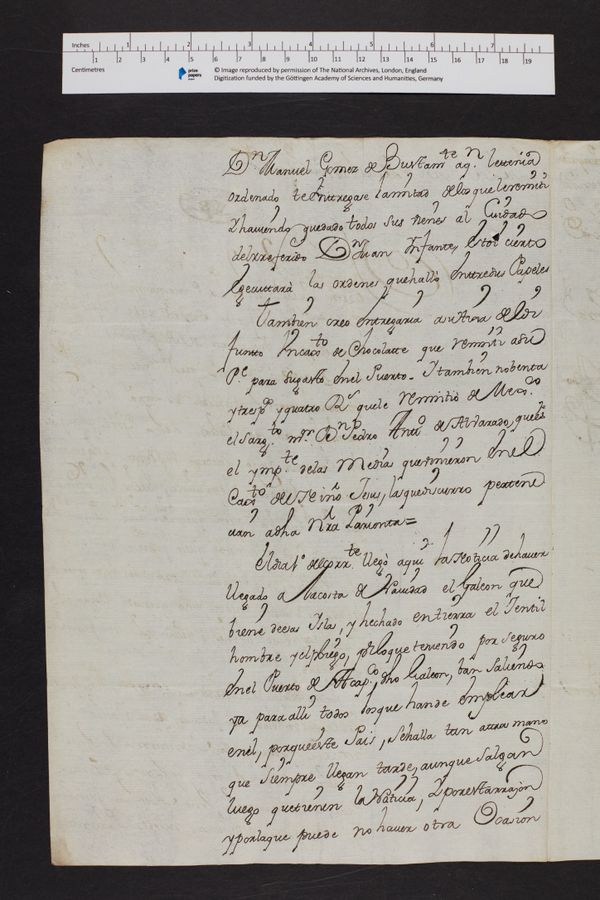 Inches 1 2 3 4 5 6 7
1 2 3 4 5 6 7 8 9 10 11 12 13 14 15 16 17 18 19
Centimetres
prize papers
© Image reproduced by permission of The National Archives, London, England
Digitization funded by the Göttingen Academy of Sciences and Humanities, Germany
Dn Manuel Gomez de Bustamte aqn letenia
ordenado te entregase lamitad delo que leremiti
Y haviendo quedado todos sus vienes al Cuidado
delrreferido Dn Juan Infante, estoi cierto
Egecuttará las ordenes quehalló enttresus Papeles
Tambien creo entregaria asutheva deldi
funto Un caxto de Chocolatte que remiti adho
Pe para sugasto enel Puerto. Y tambien nobenta
ytres ps y quatro Rs quele remitió de Mexco
el Sargto mor Dn Pedro Antto de Alvarado, queés
el ympte delas Medias quevinieron enel
Caxto del Niño Jesus, las quediscurro pertene
cian adha Nra Parienta=
Eldia 1o delcorrte llegó aqui la Noticia dehaver
llegado a lacosta de Navidad el Galeon que
biene deesas Islas, y hechado entierra el Jentil
hombre yelpliego, porloque teniendo por seguro
enel Puerto de Acapco dho Galeon, ban saliendo
ya para alli todos losque hande emplear
enel, porqueéste Pais, sehalla tan atrasmano
que siempre llegan tarde, aunque salgan
luego quetienen la Noticia, Y poresttarrazon
yporlaque puede no haver otra Ocasion